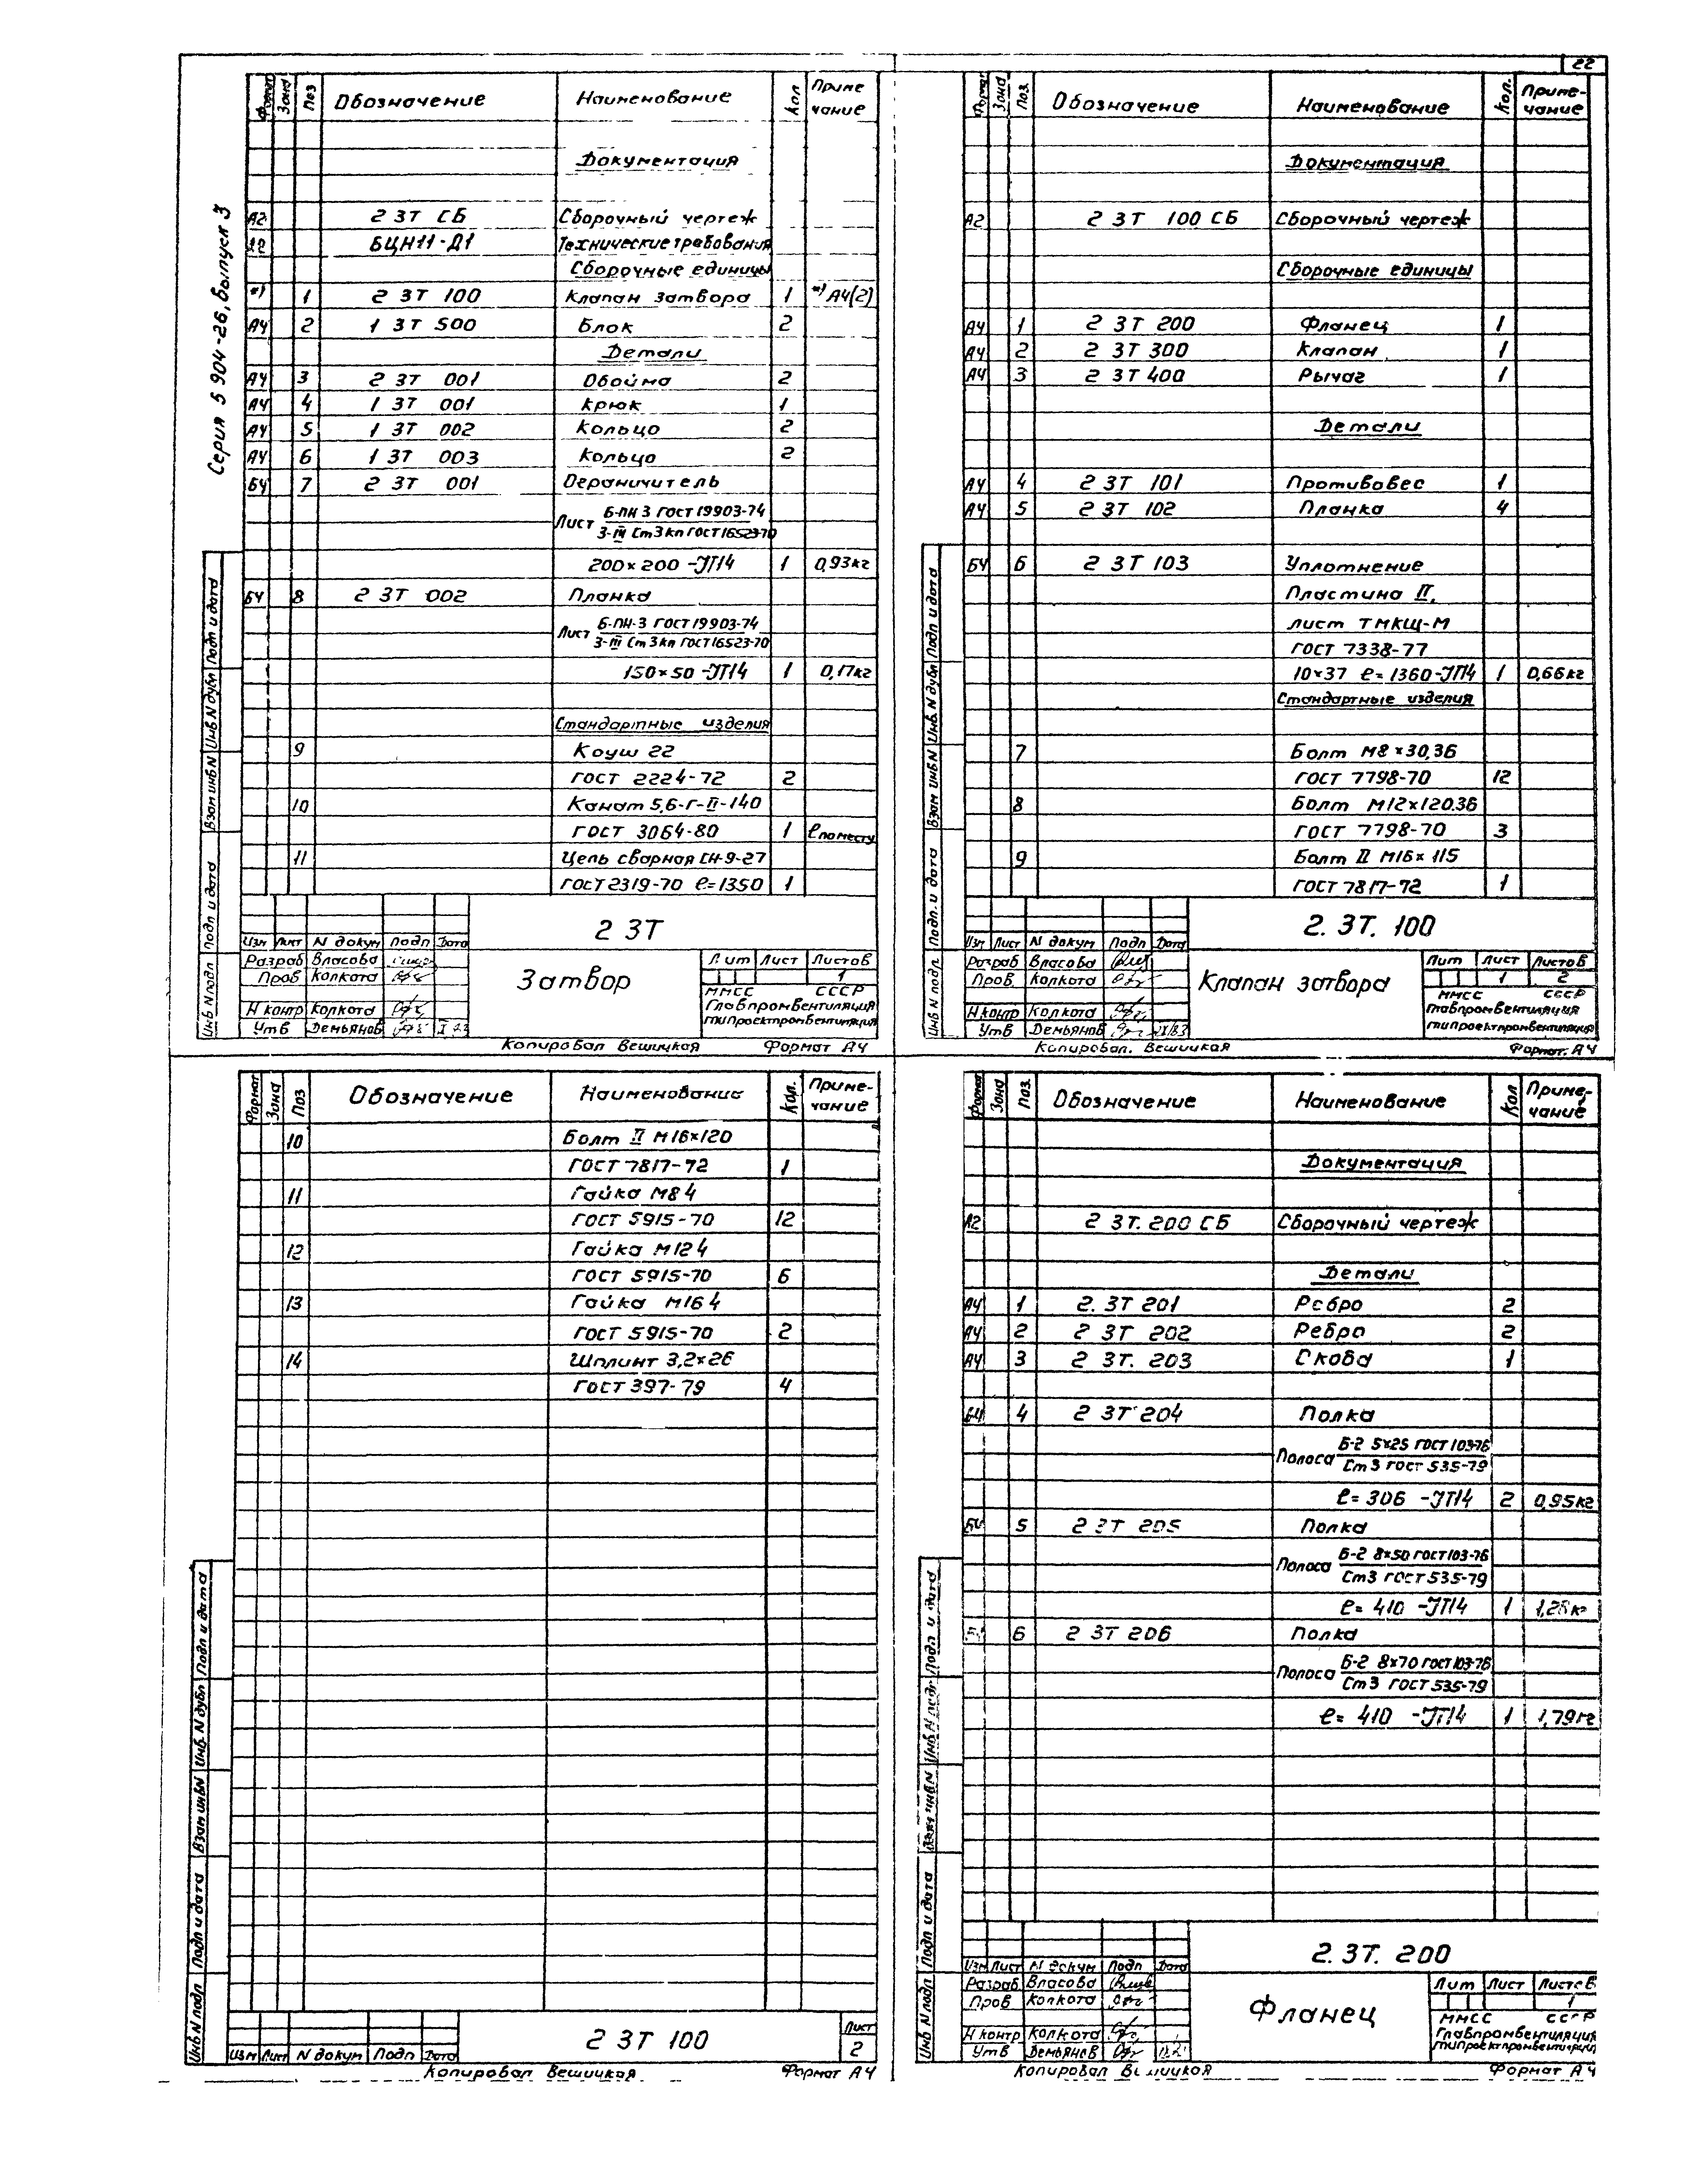 22
Серия 5 904-26, выпуск 3
Формат Зона Поз Обозначение Наименование Кол Приме чание
Документация
А2 2 ЗТ СБ Сборочный чертеж
БЦН11-Д1 Технические требования
Сборочные единицы
*) 1 2 ЗТ 100 Клапан затвора 1 *) А4(2)
А4 2 1 ЗТ 500 Блок 2
Детали
А4 3 2 ЗТ 001 Обойма 2
А4 4 1 ЗТ 001 Крюк 1
А4 5 1 ЗТ 002 Кольцо 2
А4 6 1 ЗТ 003 Кольцо 2
БЧ 7 2 ЗТ 001 Ограничитель
Лист Б-ПН 3 ГОСТ 19903-74
3-III Ст 3 кп ГОСТ 16523-70
200×200 -JT14 1 0,93кг
БЧ 8 2 ЗТ 002 Планка
Лист Б-ПН-3 ГОСТ 19903-74
3-III Ст 3 кп ГОСТ 16523-70
150×50 -JT14 1 0,17кг
Стандартные изделия
9 Коуш 22
ГОСТ 2224-72 2
10 Канат 5,6-Г-II-140
ГОСТ 3064-80 1 ℓ по месту
11 Цепь сварная СН-9-27
ГОСТ 2319-70 ℓ=1350 1
2 ЗТ
Изм Лист N докум Подп Дата
Разраб Власова
Пров Колкота
Н контр Колкота
Утв Демьянов
Затвор
Лит Лист Листов
1
ММСС СССР
Главпромвентиляция
гипроектпромвентиляция
Копировал Вешицкая Формат А4
Инв N подл Подп и дата Взам инв N Инв N дубл Подп и дата
Формат Зона Поз. Обозначение Наименование Кол. Приме-чание
Документация
А2 2 ЗТ 100 СБ Сборочный чертеж
Сборочные единицы
А4 1 2 ЗТ 200 Фланец 1
А4 2 2 ЗТ 300 Клапан 1
А4 3 2 ЗТ 400 Рычаг 1
Детали
А4 4 2 ЗТ 101 Противовес 1
А4 5 2 ЗТ 102 Планка 4
БЧ 6 2 ЗТ 103 Уплотнение
Пластина II,
лист ТМКЩ-М
ГОСТ 7338-77
10×37 ℓ=1360-JT14 1 0,66кг
Стандартные изделия
7 Болт М8×30,36
ГОСТ 7798-70 12
8 Болт М12×120.36
ГОСТ 7798-70 3
9 Болт II М16×115
ГОСТ 7817-72 1
2. ЗТ. 100
Изм Лист N докум Подп Дата
Разраб Власова
Пров Колкота
Н контр Колкота
Утв Демьянов
Клапан затвора
Лит Лист Листов
1 2
ММСС СССР
Главпромвентиляция
гипроектпромвентиляция
Копировал. Вешицкая Формат. А4
Инв N подл. Подп. и дата Взам инв N Инв. N дубл Подп и дата
Формат Зона Поз Обозначение Наименование Кол. Приме-чание
10 Болт II М16×120
ГОСТ 7817-72 1
11 Гайка М8 4
ГОСТ 5915-70 12
12 Гайка М12 4
ГОСТ 5915-70 6
13 Гайка М16 4
ГОСТ 5915-70 2
14 Шплинт 3,2×26
ГОСТ 397-79 4
Изм Лист N докум Подп Дата
2 ЗТ 100
Лист
2
Копировал Вешицкая Формат А4
Инв N подл Подп и дата Взам инв N Инв. N дубл Подп и дата
Формат Зона Поз. Обозначение Наименование Кол Приме-чание
Документация
А2 2 ЗТ. 200 СБ Сборочный чертеж
Детали
А4 1 2. ЗТ 201 Ребро 2
А4 2 2 ЗТ 202 Ребро 2
А4 3 2 ЗТ. 203 Скоба 1
БЧ 4 2 ЗТ 204 Полка
Полоса Б-2 5×25 ГОСТ 103-76
Ст 3 ГОСТ 535-79
ℓ= 306 -JT14 2 0,95кг
БЧ 5 2 ЗТ 205 Полка
Полоса Б-2 8×50 ГОСТ 103-76
Ст3 ГОСТ 535-79
ℓ= 410 -JT14 1 1,28кг
6 2 ЗТ 206 Полка
Полоса Б-2 8×70 ГОСТ 103-76
Ст 3 ГОСТ 535-79
ℓ= 410 -JT14 1 1,79кг
2. ЗТ. 200
Изм Лист N докум Подп Дата
Разраб Власова
Пров Колкота
Н контр Колкота
Утв Демьянов
Фланец
Лит Лист Листов
1
ММСС СССР
Главпромвентиляция
гипроектпромвентиляция
Копировал Вешицкая Формат А4
Инв N подл Подп и дата Взам инв N Подп и дата